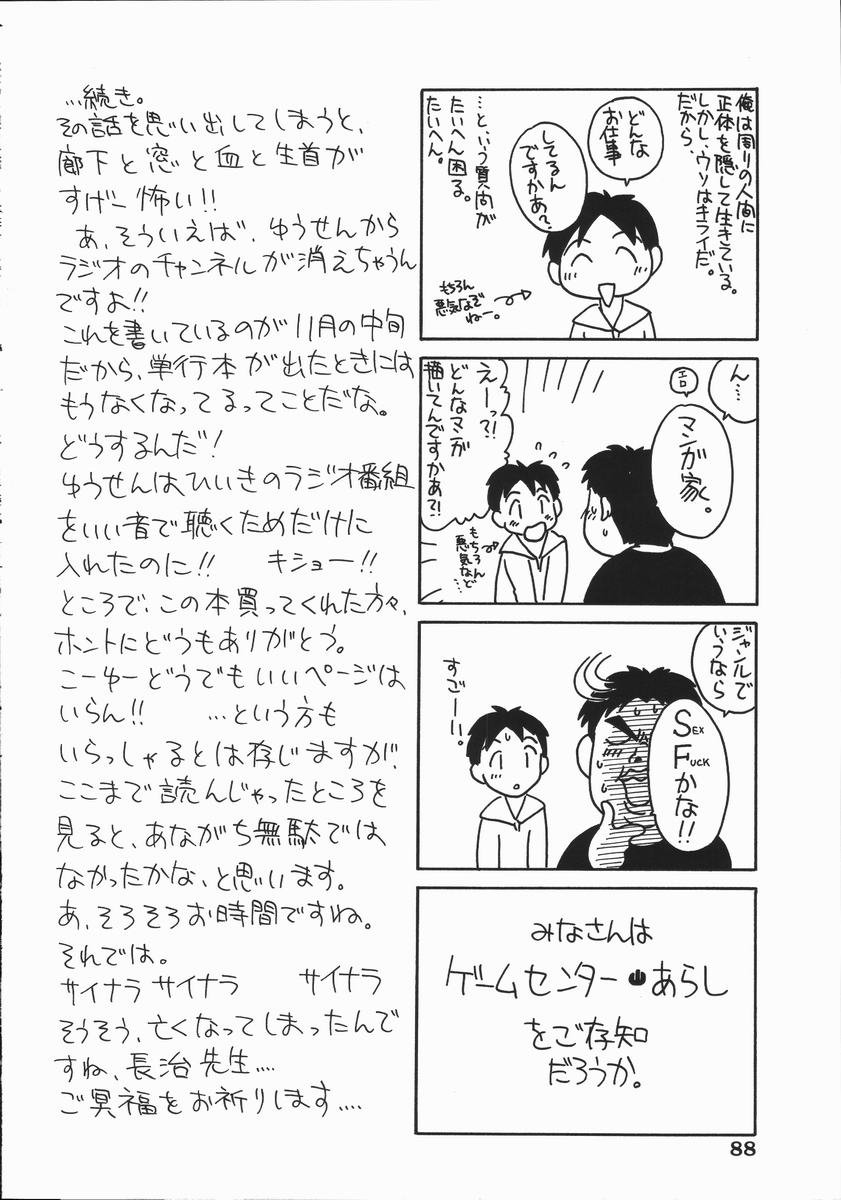 俺は周りの人間に
正体を隠して生きている。
しかし、ウソはキライだ。
だから、
どんな
お仕事
してるん
ですかあ?
…という質問が
たいへん困る。
たいへん。
もちろん
悪気なぞ
ねー。
ん…
エロ
マンガ家。
えーっ?!
どんなマンガ
描いてんですかあ?!
もちろん
悪気など
…
ジャンルで
いうなら
SEX
FUCK
かな!!
すごーい。
みなさんは
ゲームセンターあらし
をご存知
だろうか。
…続き。
その話を思い出してしまうと、
廊下と窓と血と生首が
すげー怖い!!
あ、そういえば、ゆうせんから
ラジオのチャンネルが消えちゃうん
ですよ!!
これを書いているのが11月の中旬
だから、単行本が出たときには
もうなくなってるってことだな。
どうするんだ!
ゆうせんはひいきのラジオ番組
をいい音で聴くためだけに
入れたのに!! キショー!!
ところで、この本買ってくれた方々、
ホントにどうもありがとう。
こーゆーどうでもいいページは
いらん!! …という方も
いらっしゃるとは存じますが、
ここまで読んじゃったところを
見ると、あながち無駄では
なかったかな、と思います。
あ、そろそろお時間ですね。
それでは。
サイナラ サイナラ サイナラ
そうそう、亡くなってしまったんで
すね、長治先生….
ご冥福をお祈りします….
88